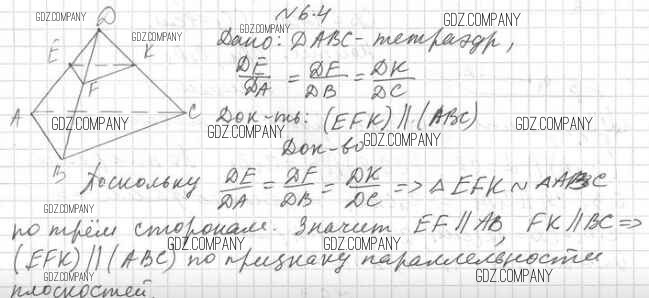 №6.4
GDZ.COMPANY
GDZ.COMPANY
GDZ.COMPANY
GDZ.COMPANY
D
E
K
F
A
C
B
Дано: DABC - тетраэдр,
DE/DA = DF/DB = DK/DC
GDZ.COMPANY
GDZ.COMPANY
Док-ть: (EFK) || (ABC)
GDZ.COMPANY
GDZ.COMPANY
GDZ.COMPANY
Док-во
Поскольку DE/DA = DF/DB = DK/DC => △EFK ~ △ABC
GDZ.COMPANY
по трём сторонам. Значит EF || AB, FK || BC =>
GDZ.COMPANY
GDZ.COMPANY
(EFK) || (ABC) по признаку параллельности
GDZ.COMPANY
GDZ.COMPANY
плоскостей.